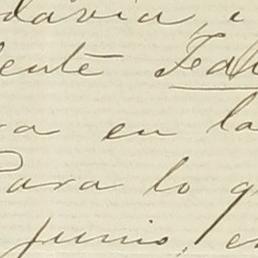 davia, e
ente Feder
ra en la
Para lo q
junio, e